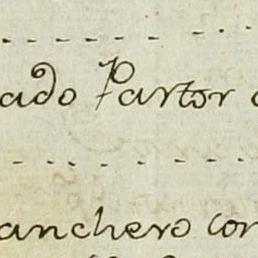 ado Pastor
anchero con